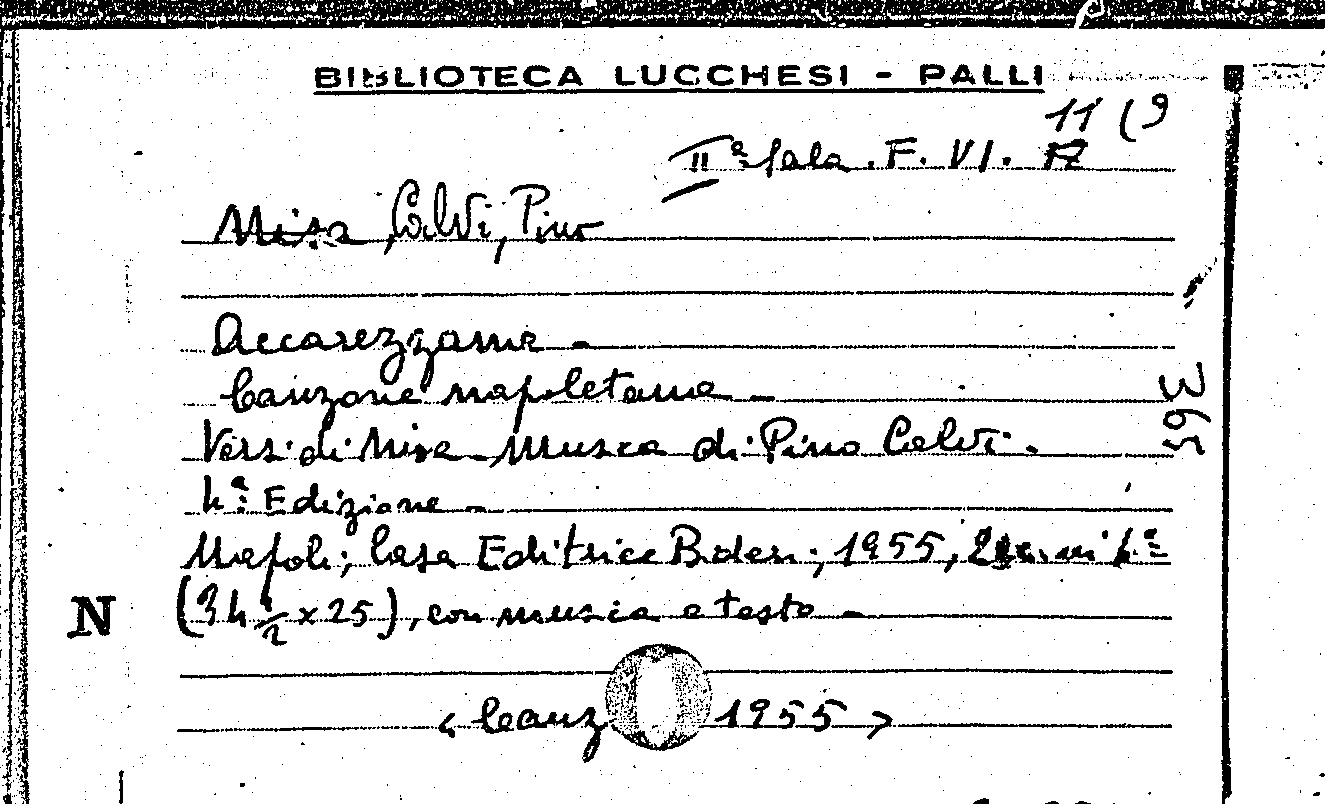 BIBLIOTECA LUCCHESI - PALLI
11 (9
IIª Sala. F. VI.
Nisa, Calvi, Pino
Accarezzame -
Canzone napoletana -
Versi di Nisa - Musica di Pino Calvi.
4ª Edizione -
Napoli; Casa Editrice Bideri; 1955, in
(34 1/2 x 25), con musica e testo -
N
< Canz 1955 >
365